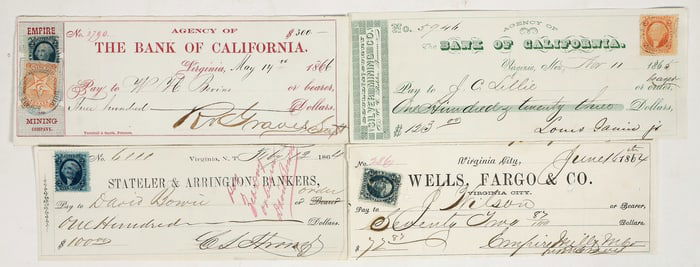 EMPIRE
MINING
COMPANY.
No. 2790.
AGENCY OF
$300—
THE BANK OF CALIFORNIA.
Virginia, May 14th 1866
Pay to W. H. or bearer,
Three hundred Dollars.
Towne & Bacon, Printers.
R. Graves Supt
SILVER MINING CO.
No. 5946
AGENCY OF
The BANK OF CALIFORNIA.
Virginia, Nev. Nov 11 1865
Pay to J. C. Lillie or order,
bearer
One Hundred & twenty three Dollars
$ 123 00
Louis Janin Jr
No. 6111
Virginia, N. T. 1864
STATELER & ARRINGTON, BANKERS,
Pay to David or Bearer
order
One Hundred Dollars.
$ 100 00
No. 286.
Virginia City, June 16th 1864
WELLS, FARGO & CO.
VIRGINIA CITY.
Pay to J. Wilson or Bearer,
Seventy Two 87/100 Dollars
$ 72 87
Empire Mill & M Co